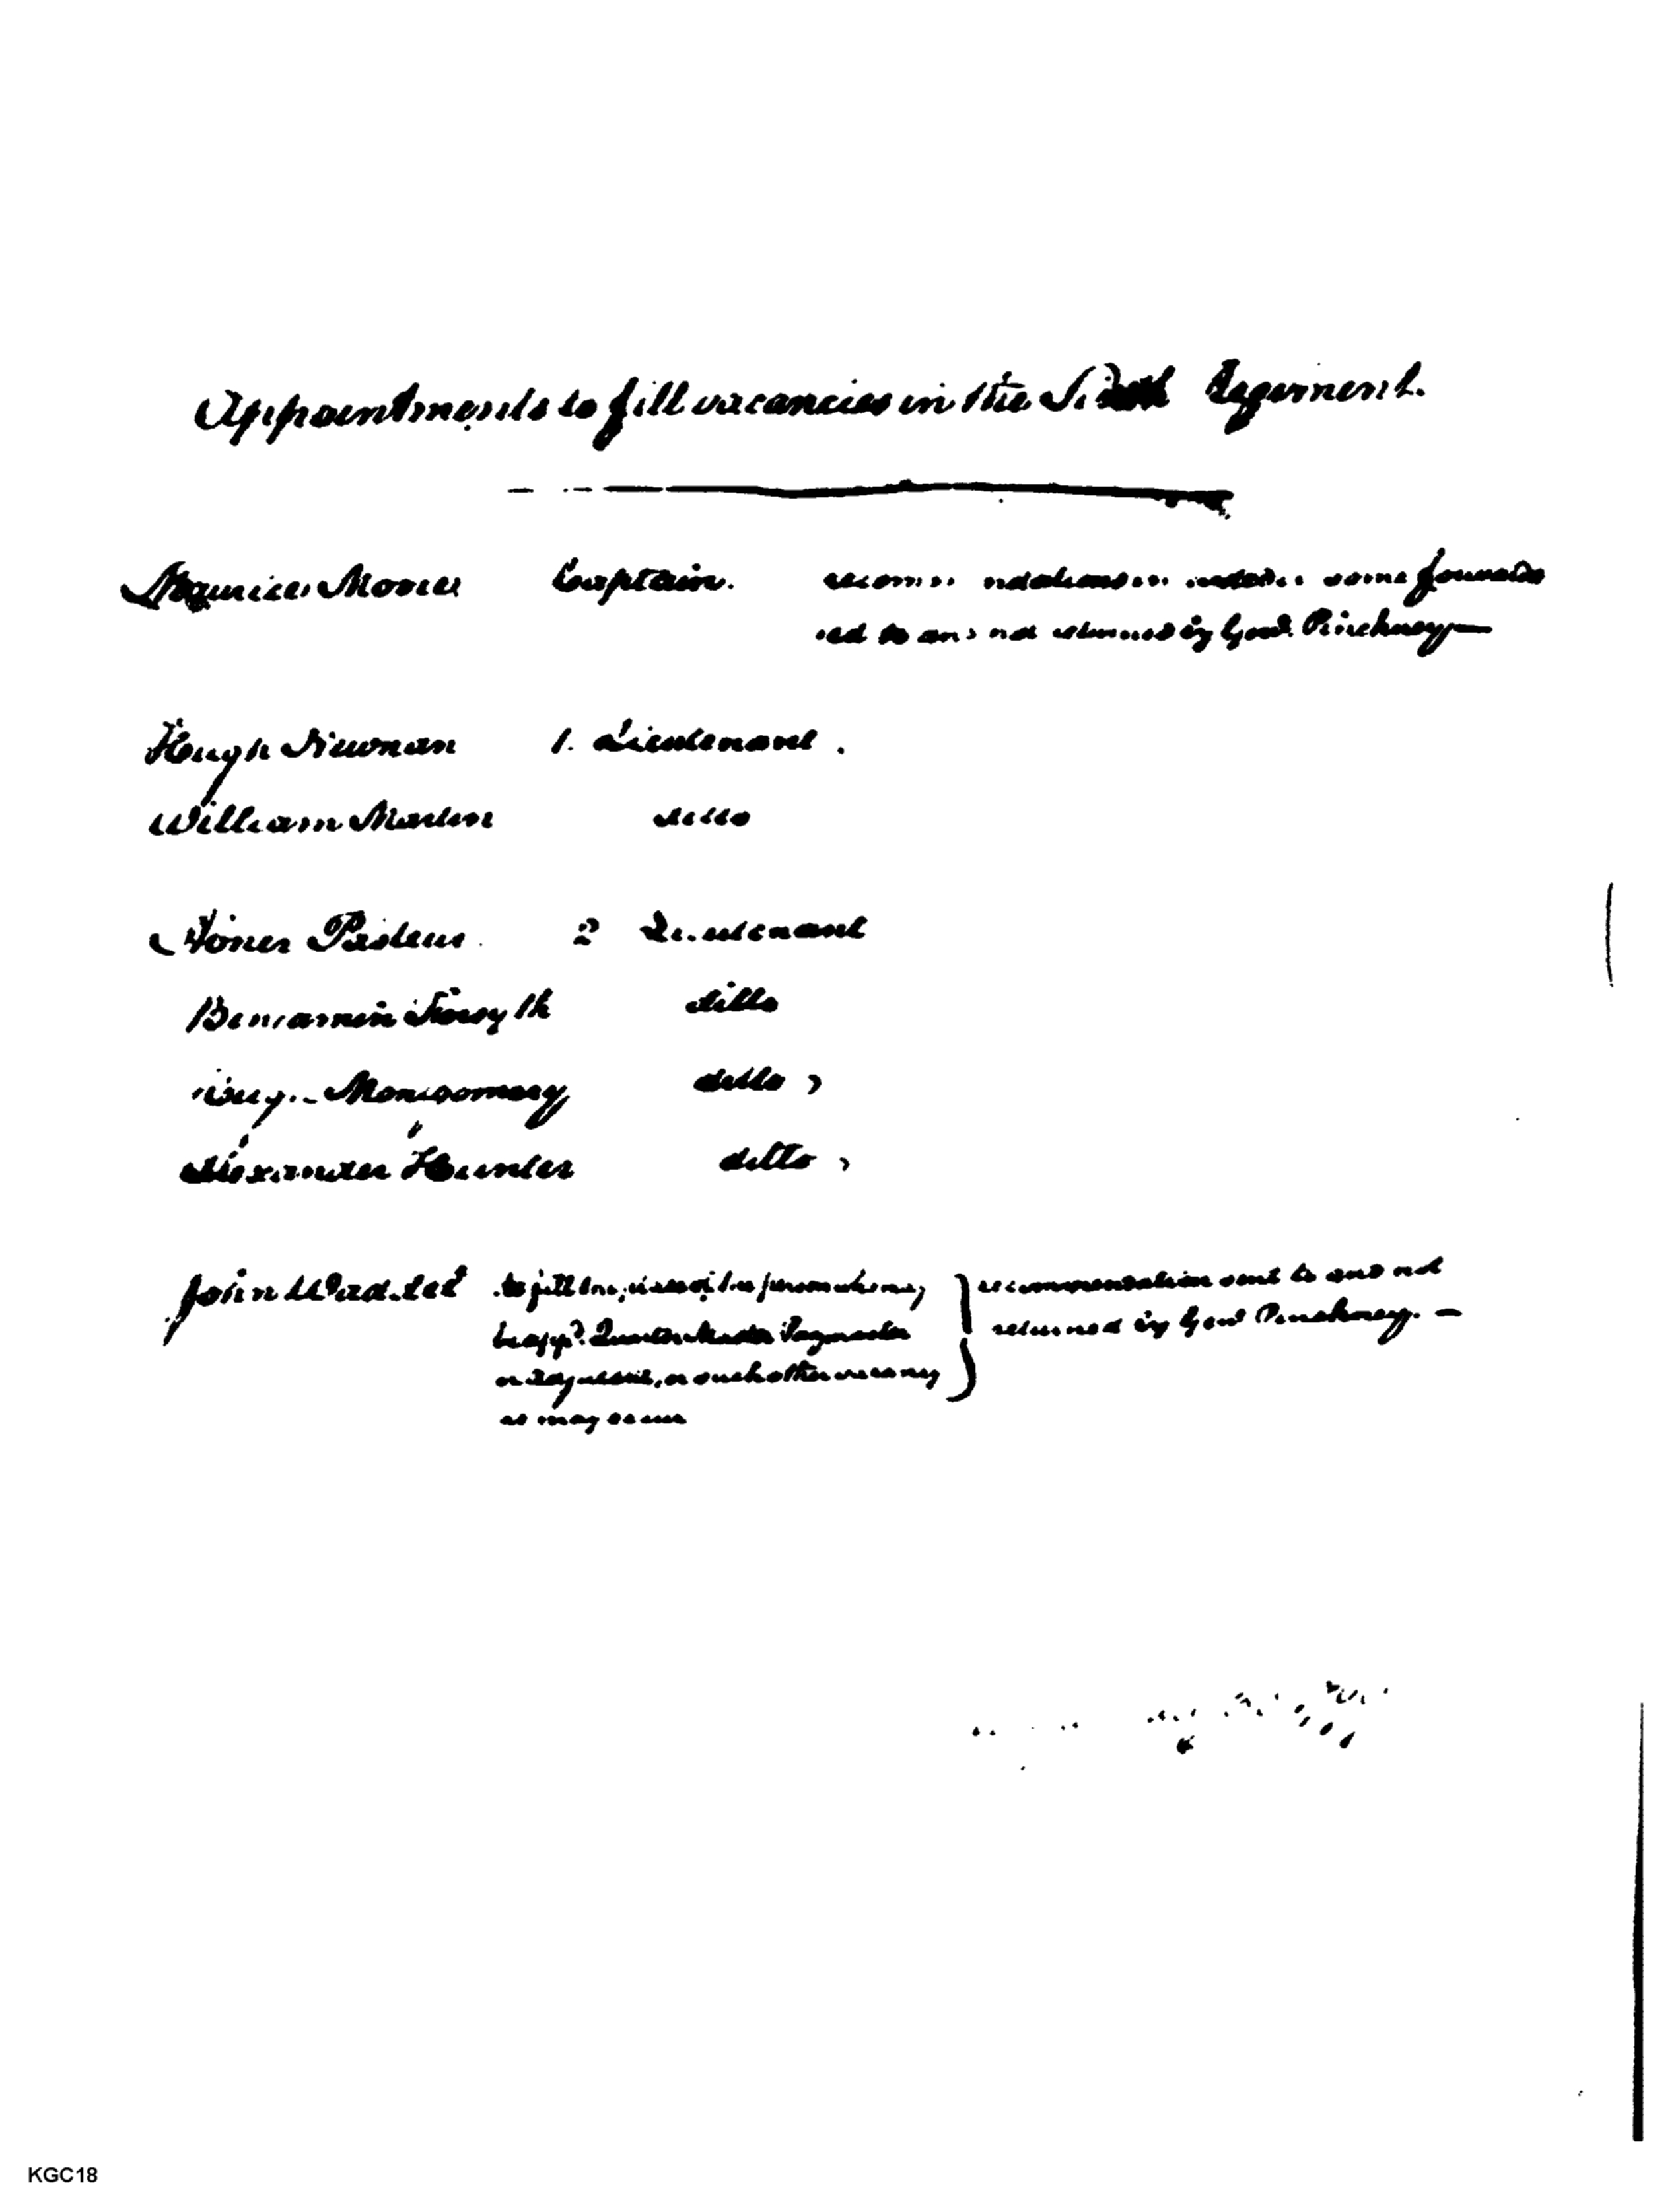 Appointments to fill vacancies in the Sixth Regiment.
Maurice Moore Captain. recommendations some forward
ed to and not returned by Genl. Pinckney—
Hugh Newman 1. Lieutenant.
William Martin ditto
Pasteur. 2 Lieutenant
Benjamin Forsyth ditto
Hugh Montgomery ditto
Alexander Hunter ditto
John Waddel to fill the of the person who may
be appd. Quarter Master Paymaster
or Adjutant, or such other vacancy
as may occur
recommendation sent to and not
returned by Genl Pinckney. —
KGC18